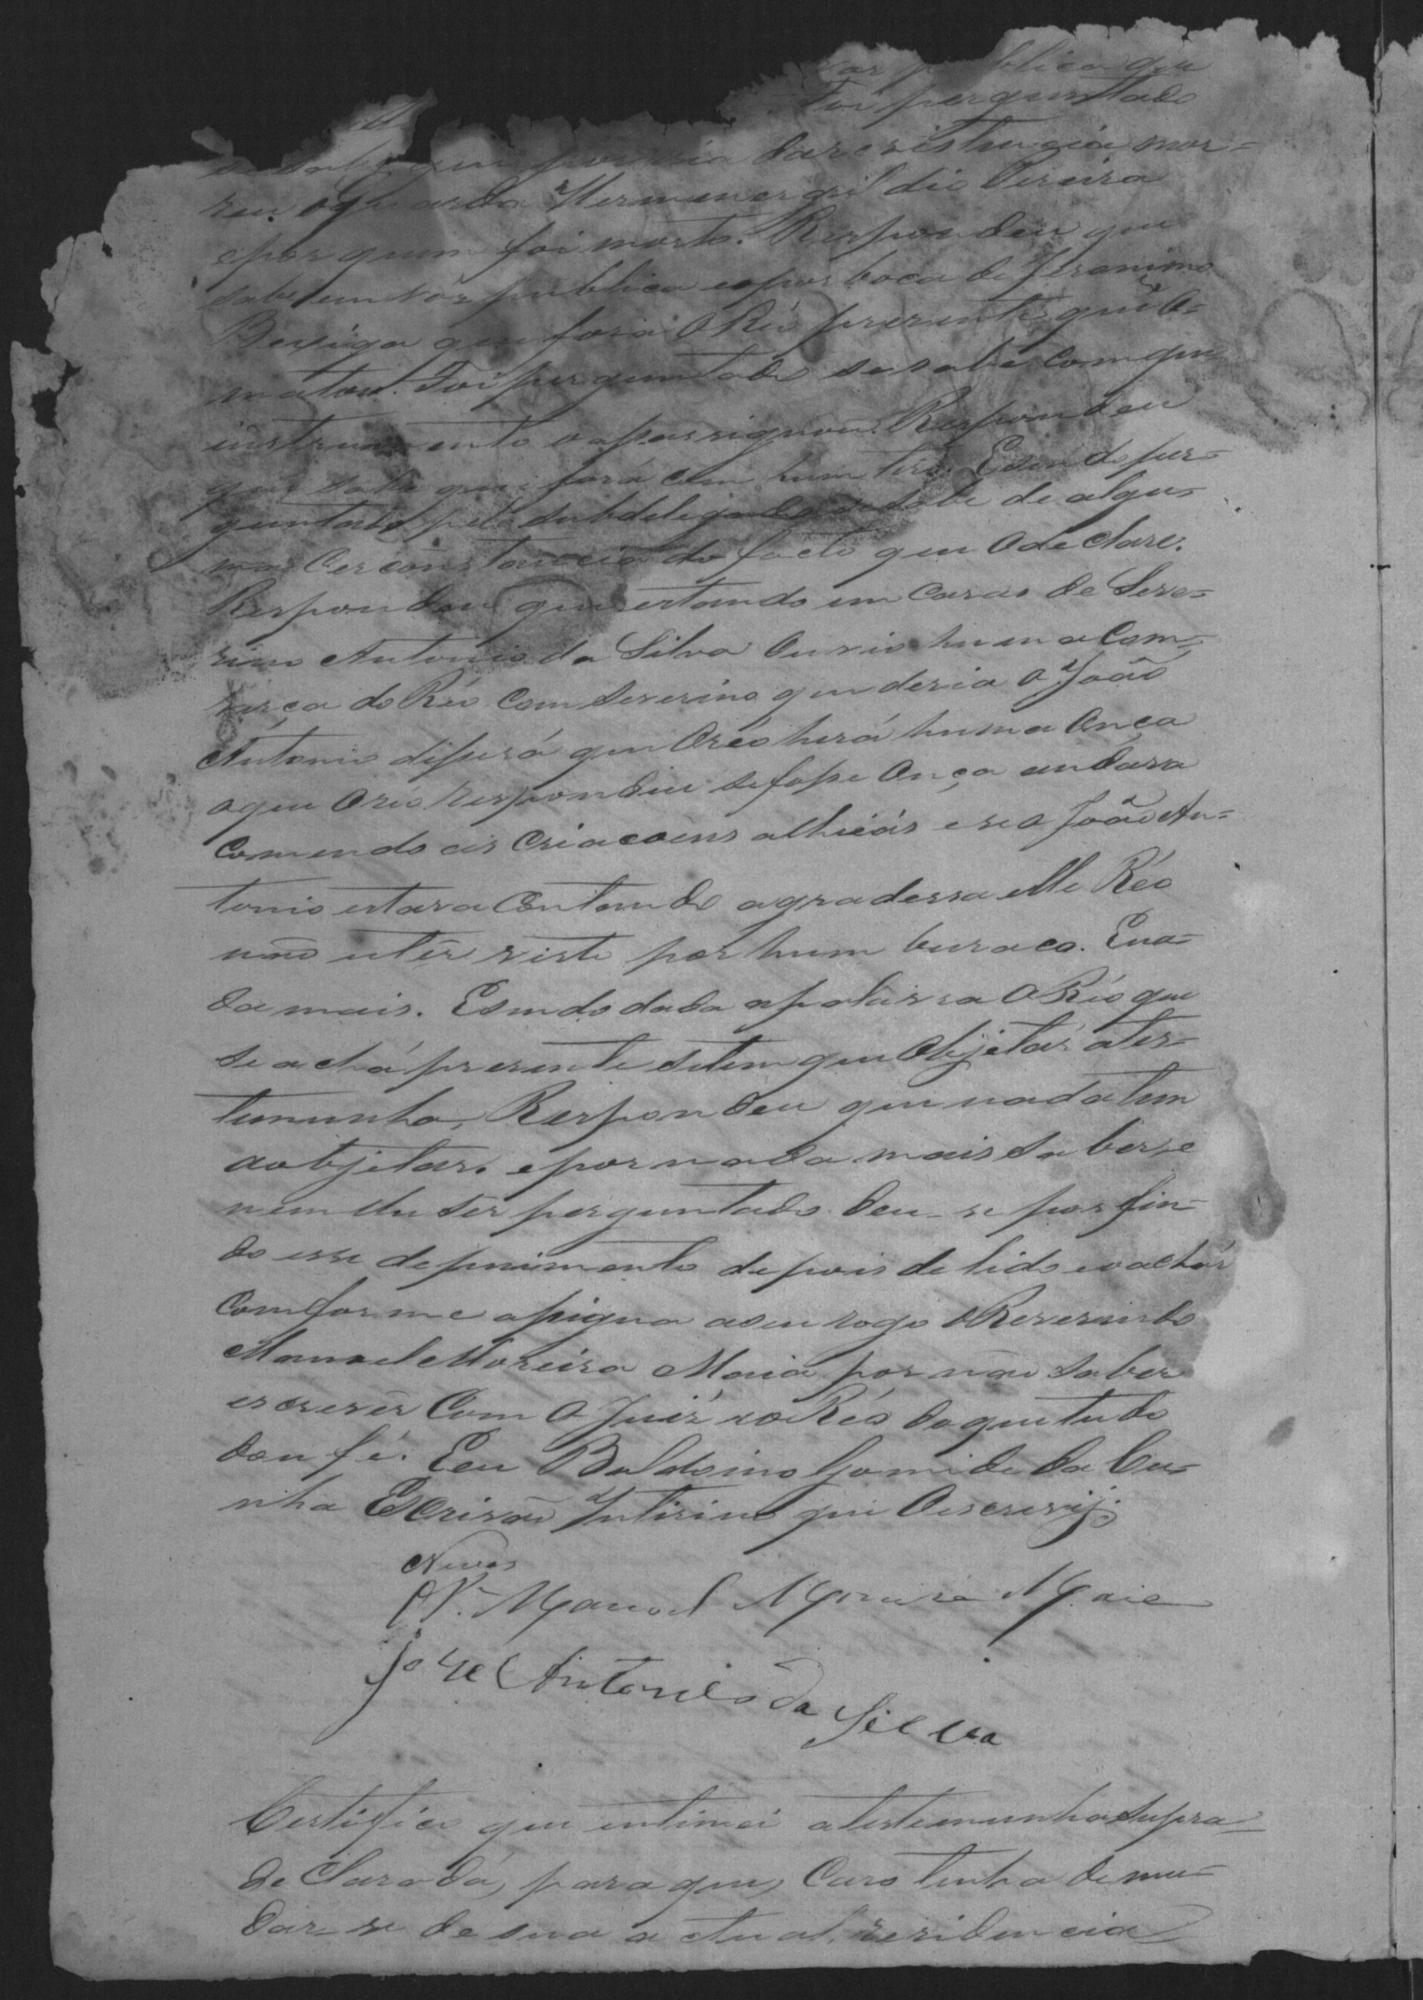 publica que
Foi perguntado
mor-
reu oguarda Hermenergildio Pereira
epor quem foi morto. Respondeu que
sabe em vós publica epor boca de Jeronimo
Bexiga que fora o Réo prezente quê o-
matou. Foi perguntado se sabe com que
instrumento o apassignou. Respondeu
que sabe que fora com hum tiro. E sendo per-
guntado pelo subdelegado se sabe de algu-
mas Cerconstancia do facto que o declare.
Respondeu que estando em cazas de Seve-
rino Antonio da Silva Ouvio huma Com-
verça do Réo Com Severino que deria o João
Antonio dissera que Oréo herá huma Onça
aque Oréo respondeu se fosse Onça andava
Comendo as Criacoens alheiás e se o João An-
tonio estava Contando agradessa elle Réo
não utêr visto por hum buraco. Ena-
da mais. Esendo dada apalavra O Réo que
se achá prezente setem que Objetár ates-
temunha, Respondeu que nada tem
aobjetar. epor nada mais saber e
nem lhe ser perguntado deu-se por fin-
do esse depuimento depois de lido eo achár
Comforme assigna aseu rogo OReverendo
Manoel Moreira Maia por não saber
escrevêr Com o Juiz eo Réo do que tudo
dou fé. Eeu Baldoino Gomide da Cu-
nha Escrivão Intirino que Oescrevij.
Neves
Pe. Manoel Moreira Maia
Jozé Antonio da Silva
Certifico que intimei atestemunha supra-
declarada, para que, Cazo tenha de mu-
dar-se de sua actual rezidencia